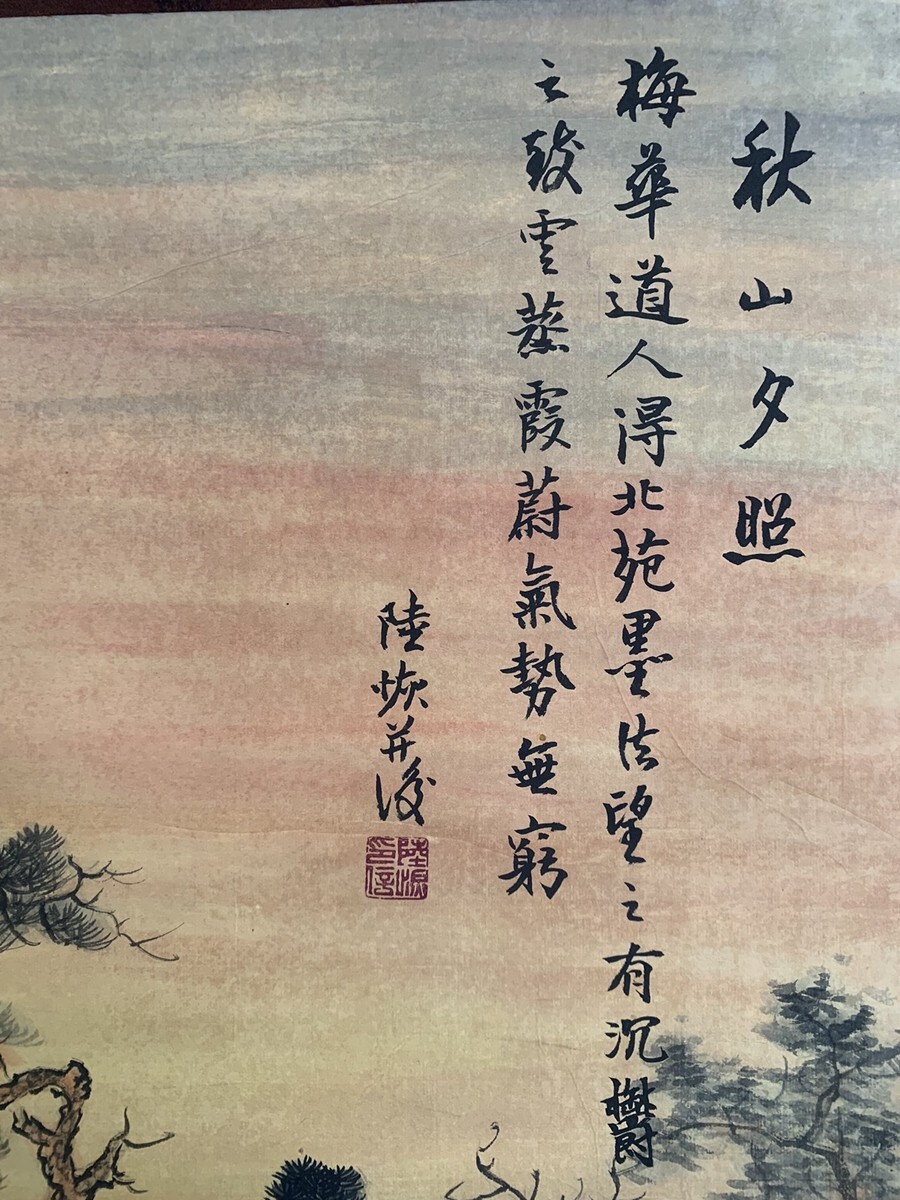 秋山夕照
梅華道人得北苑墨法望之有沉鬱
之致雲蒸霞蔚氣勢無窮
陸恢并後
陸恢
印信